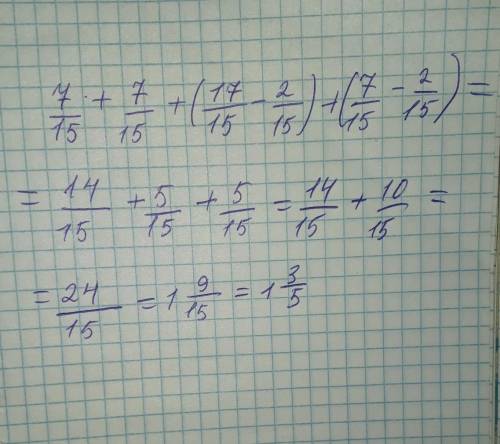 7/15 + 7/15 + (17/15 - 2/15) + (7/15 - 2/15) =
= 14/15 + 5/15 + 5/15 = 14/15 + 10/15 =
= 24/15 = 1 9/15 = 1 3/5